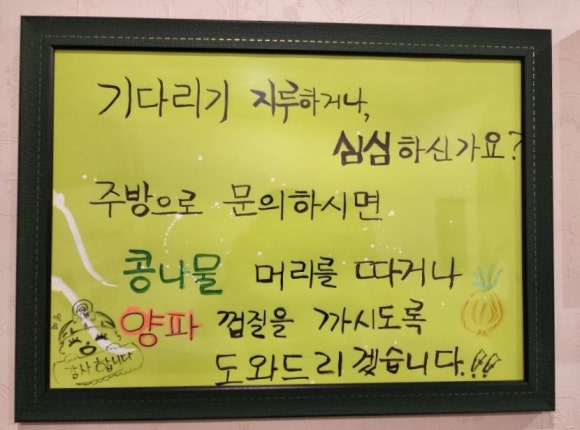 기다리기 지루하거나,
심심하신가요?
주방으로 문의하시면
콩나물 머리를 따거나
양파 껍질을 까시도록
도와드리겠습니다.
감사합니다